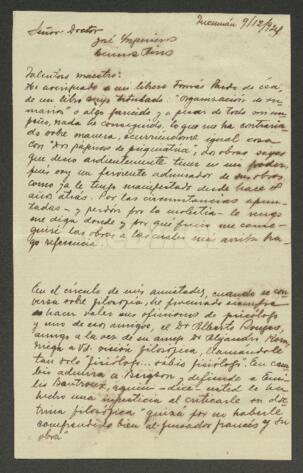 Tucumán 9/12/924
Señor Doctor
José Ingenieros
Buenos Aires
Talentoso maestro:
He a mi librero Tomás Pardo de ésa,
de un libro titulado: "Organización de
" o algo parecido y a pesar de todo mi em-
peño nada he conseguido, lo que me ha contraria-
do sobre manera, ocurriéndome igual cosa
con "Dos páginas de psiquiatría"; obras suyas
que deseo ardientemente tener en mi poder,
pues soy un ferviente admirador de sus obras
como ya le tengo manifestado desde hace
años atrás. Por las circunstancias apun-
tadas - y perdón por la molestia - le ruego
me diga donde y por qué precio me conse-
guiré las obras a las cuales más arriba ha-
go referencia.
En el círculo de mis amistades, cuando se con-
versa sobre filosofía, he procurado siempre
hacer valer sus opiniones de psicólogo
y uno de esos amigos, el Dr Alberto Rougés,
amigo a la vez de su amigo Dr Alejandro Korn,
niega a Vd. visión filosófica, llamándole
tan solo "fisiólogo... sabio fisiólogo". En cam-
bio admira a Bergson, y defiende a Emi-
lio Boutroux, a quien - dice - usted le ha
hecho una injusticia al criticarle su doc-
trina filosófica "quizá por no haberle
comprendido bien al pensador francés y su
obra"